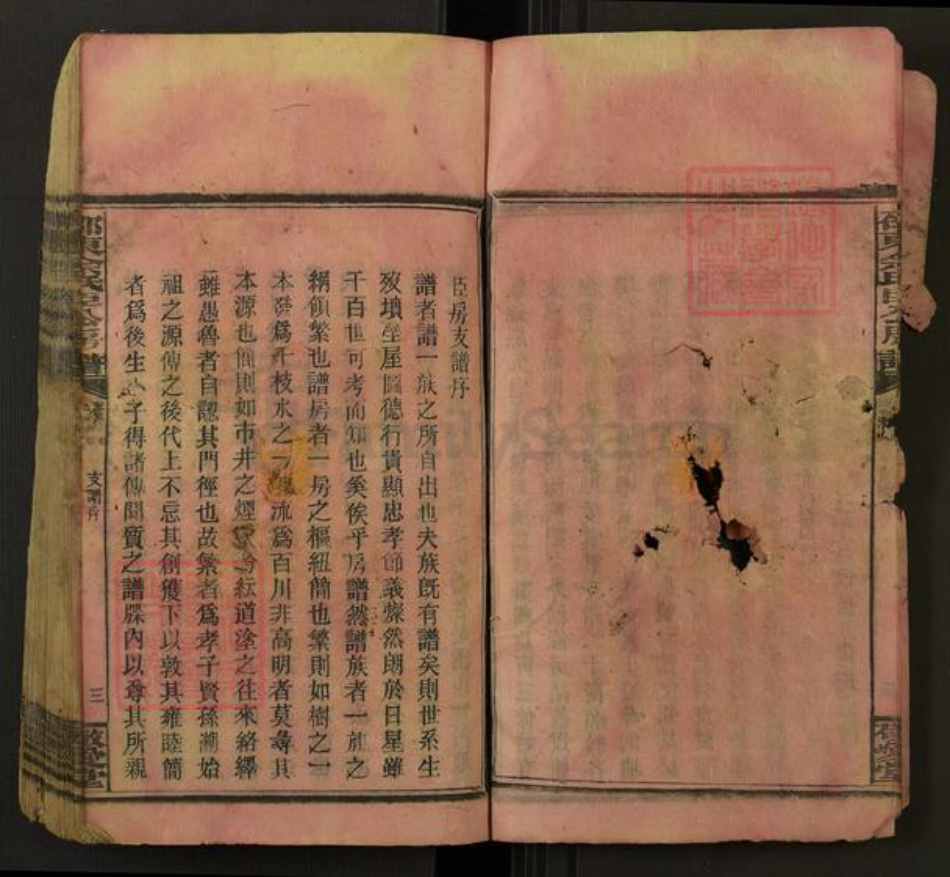 臣房支譜序
譜者譜一族之所自出也夫族既有譜矣則世系生
歿墳塋屋圖德行貴顯忠孝節義燦然朗於日星雖
千百世可考而知也奚俟乎房譜然譜族者一族之
綱領繁也譜房者一房之樞紐簡也繁則如樹之一
本發爲千枝水之一流爲百川非高明者莫尋其
本源也簡則如市井之煙紜道塗之往來絡繹
雖愚魯者自認其門徑也故繁者爲孝子賢孫溯始
祖之源傳之後代上不忘其創獲下以敦其雍睦簡
者爲後生子得諸傳聞質之譜牒內以尊其所親
支譜序
三